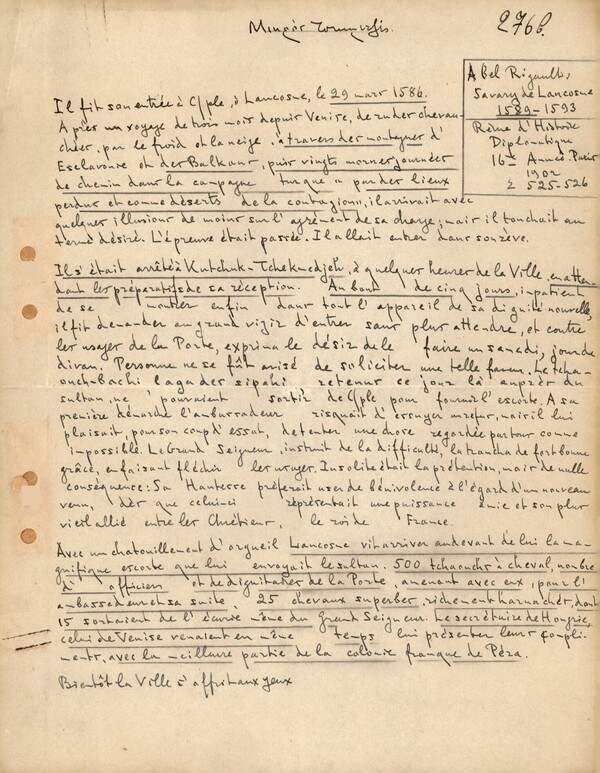 276b.
Abel Rigault,
Savary de Lancosne
1589-1593
Revue d'Histoire
Diplomatique
16me Année. Paris
1902
525-526
Il fit son entrée à C/ple, Lancosne, le 29 mars 1586.
Après un voyage de trois mois depuis Venise, de rudes chevau-
chées, par le froid et la neige, à travers des montagnes d'
Esclavonie et des Balkans, puis vingts mornes journées
de chemin dans la campagne turque "par des lieux
perdus et comme déserts de la contagion", il arrivait avec
quelques illusions de moins sur l'agrément de sa charge; mais il touchait au
terme désiré. L'épreuve était passée. Il allait entrer dans son rêve.
Il s'était arrêté à Kutchuk-Tchekmedjeh, à quelques heures de la Ville, en atten-
dant les préparatifs de sa réception. Au bout de cinq jours, impatient
de se montrer enfin dans tout l'appareil de sa dignité nouvelle,
il fit demander au grand vizir d'entrer sans plus attendre, et contre
les usages de la Porte, exprima le désir de le faire un samedi, jour de
divan. Personne ne se fût avisé de soliciter une telle faveur. Le tcha-
ouch-bachi l'aga des sipahi retenus ce jour là auprès du
sultan, ne pouvaient sortir de C/ple pour fournir l'escorte. A sa
première démarche l'ambassadeur risquait d'essuyer un refus, mais il lui
plaisait, pour son coup d'essai, de tenter une chose regardée partout comme
impossible. Le Grand Seigneur, instruit de la difficulté, la trancha de fort bonne
grâce, en faisant fléchir les usages. Insolite était la prétention, mais de nulle
conséquence: Sa Hautesse préférait user de bénivolence à l'égard d'un nouveau
venu, dès que celui-ci représentait une puissance amie et son plus
vieil allié entre les Chrétiens, le roi de France.
Avec un chatouillement d'orgueil Lancosne vit arriver au devant de lui la ma-
gnifique escorte que lui envoyait le sultan. 500 tchaouchs à cheval, nombre
d'officiers et de dignitaires de la Porte, amenant avec eux, pour l'
ambassadeur et sa suite, 25 chevaux superbes, richement harnachés, dont
15 sortaient de l'écurie même du Grand Seigneur. Le secrétaire de Hongrie,
celui de Venise venaient en même temps lui présenter leurs compli-
ments, avec la meilleure partie de la colonie franque de Péra.
Bientôt la Ville s'offrit aux yeux